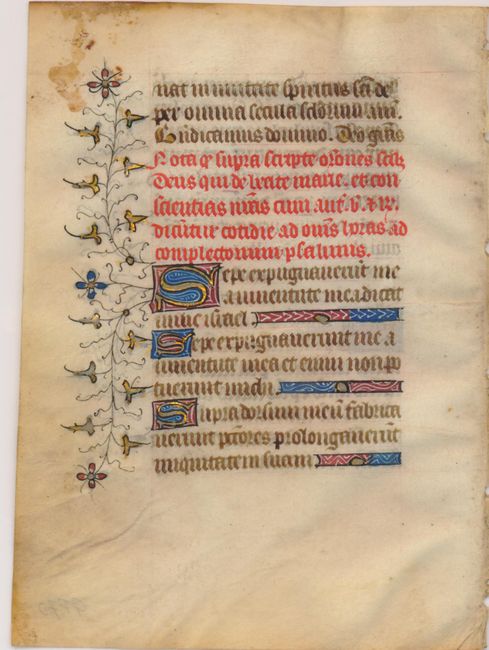 nat in unitate spiritus sci de
per omnia secula sclorum am.
Bndicamus domino. Deo gras
Nota q supra scripte orones scilz
Deus qui de beate marie. et con
scientias nras cum ant. v. et rx.
dicuntur cotidie ad oms horas ad
complectorium psalmus.
Sepe expugnauerut me
a iuuentute mea dicat
nunc israel
Sepe expugnauerunt me a
iuuentute mea et enim non po
tuerunt michi
Supra dorsum meu fabrica
uerunt pctores prolongauerut
iniquitatem suam